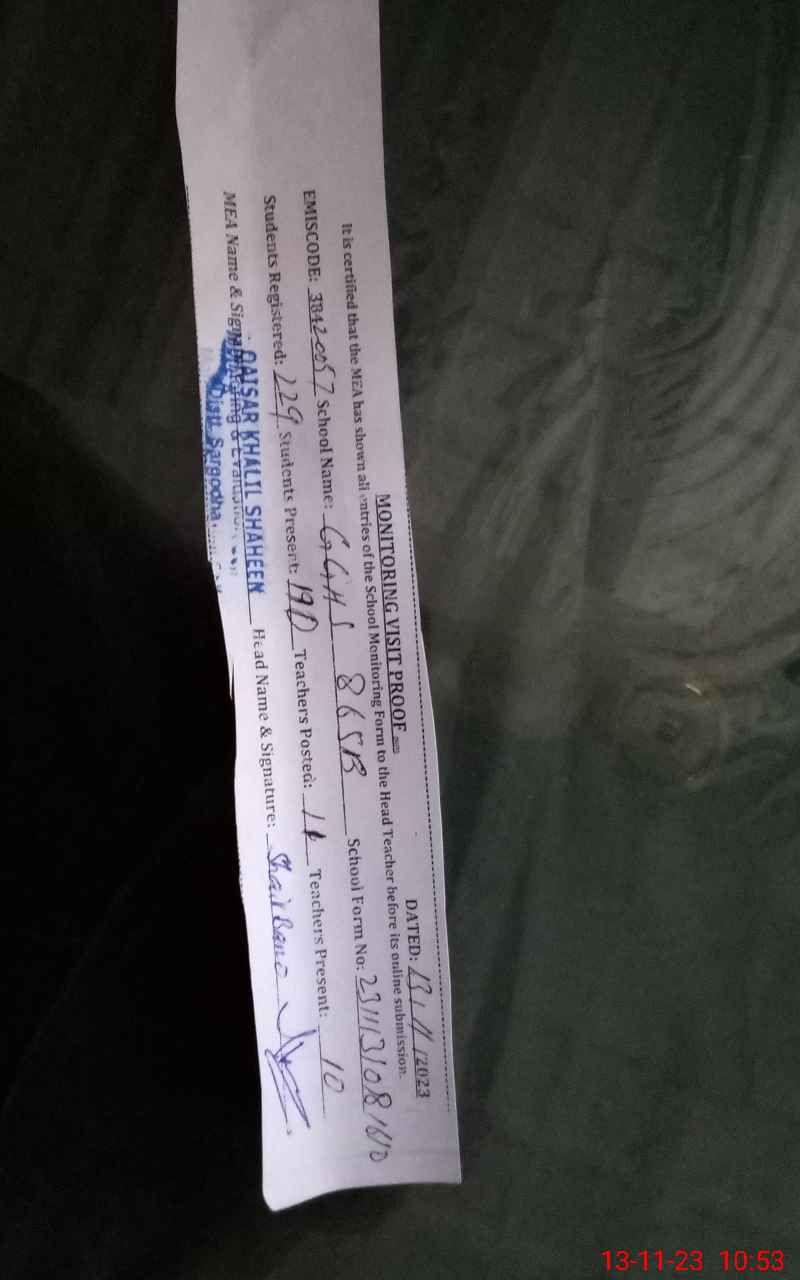 DATED: 13/11/2023
MONITORING VISIT PROOF
It is certified that the MEA has shown all entries of the School Monitoring Form to the Head Teacher before its online submission.
EMISCODE: 38420057 School Name: GGHS 86SB School Form No:
Students Registered: 229 Students Present: 190 Teachers Posted: Teachers Present: 10
MEA Name & QAISAR KHALIL SHAHEEN Head Name & Signature: Bano
Monitoring & Evaluation
Distt. Sargodha
13-11-23 10:53